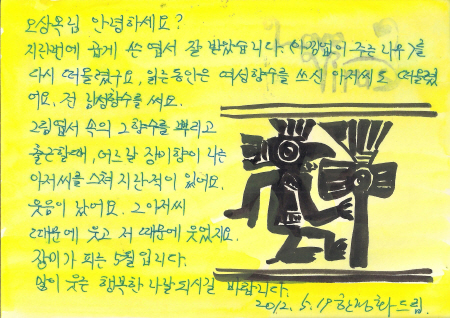 오상옥님 안녕하세요?
지난번에 곱게 쓴 엽서 잘 받았습니다. <아낌없이 주는 나무>를
다시 떠올렸구요. 읽는동안은 여성향수를 쓰신 아저씨도 떠올렸
어요. 전 남성향수를 써요.
그림엽서 속의 그 향수를 뿌리고
출근할때, 어느날 장미향이 나는
아저씨를 스쳐 지난적이 있어요.
웃음이 났어요. 그 아저씨
때문에 웃고 저 때문에 웃었지요.
장미가 피는 5월입니다.
많이 웃는 행복한 나날 되시길 바랍니다.
2012. 5. 19 한정화 드림.